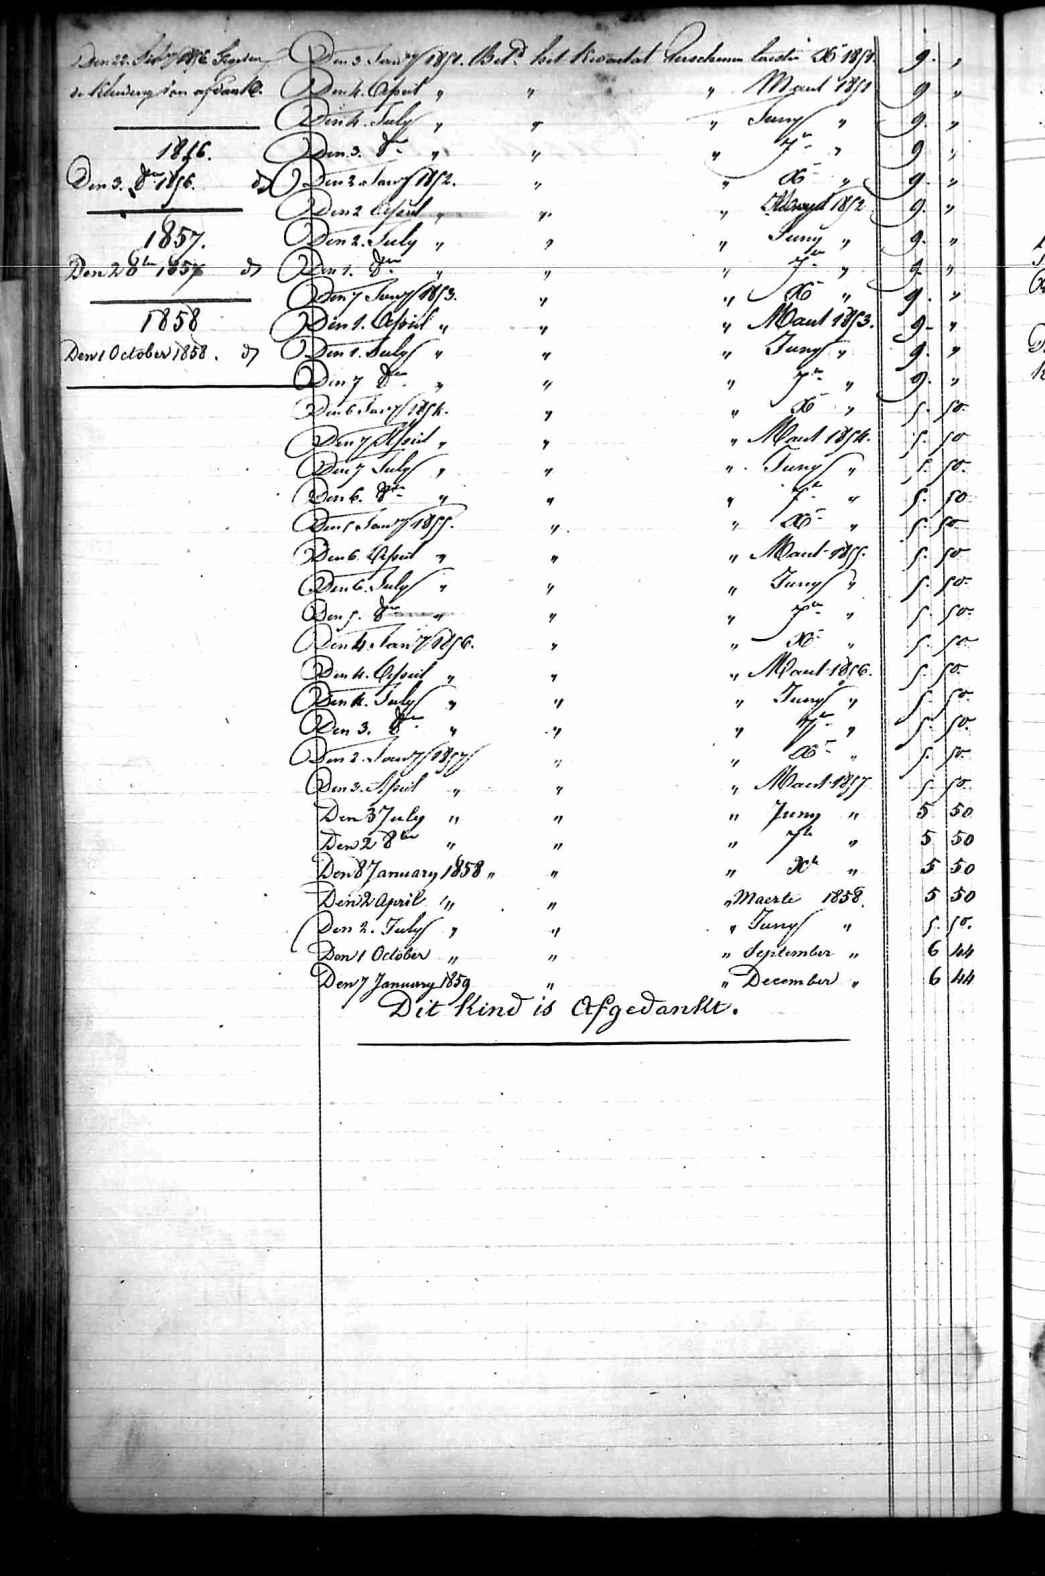 Den 22 1856
de kleding van afdank.
1856.
Den 3. 8ber 1856. do
1857.
Den 2 8ber 1857 do
1858
Den 1 October 1858. do
Den 3 Janry 1851. Betd het kwartal verschenen Xber 1851. 9. "
Den 4. April " " " Maart 1851 9 "
Den 4. July " " " Juny " 9. "
Den 3. 8ber " " " 7ber " 9 "
Den 2 Janry 1852. " " Xber " 9. "
Den 2 April " " " 1852 9. "
Den 2. July " " " Juny " 9. "
Den 1. 8ber " " " 7ber " 9. "
Den 7 Janry 1853. " " Xber " 9. "
Den 1. April " " " Maart 1853. 9. "
Den 1. July " " " Juny " 9. "
Den 7 8ber " " " 7ber " 9. "
Den 6 Janry 1854. " " Xber " 5. 50.
Den 7 April " " " Maart 1854. 5. 50
Den 7 July " " " Juny " 5. 50.
Den 6. 8ber " " " 7ber " 5. 50
Den 5 Janry 1855. " " Xber " 5. 50
Den 6. April " " " Maart 1855. 5. 50
Den 6. July " " " Juny " 5. 50.
Den 5. 8ber " " " 7ber " 5. 50.
Den 4. Janry 1856. " " Xber " 5. 50.
Den 4. April " " " Maart 1856. 5. 50.
Den 4. July " " " Juny " 5. 50.
Den 3. 8ber " " " 7ber " 5. 50.
Den 2. Janry 1857 " " Xber " 5. 50.
Den 3. April " " " Maart 1857 5. 50.
Den 3 July " " " Juny " 5 50
Den 2 8ber " " " 7br " 5 50
Den 8 January 1858 " " " Xbr " 5 50
Den 2 April " " " Maerte 1858. 5 50
Den 2. July " " " Juny " 5. 50.
Den 1 October " " " September " 6 44
Den 7 January 1859 " " December " 6 44
Dit kind is Afgedankt.